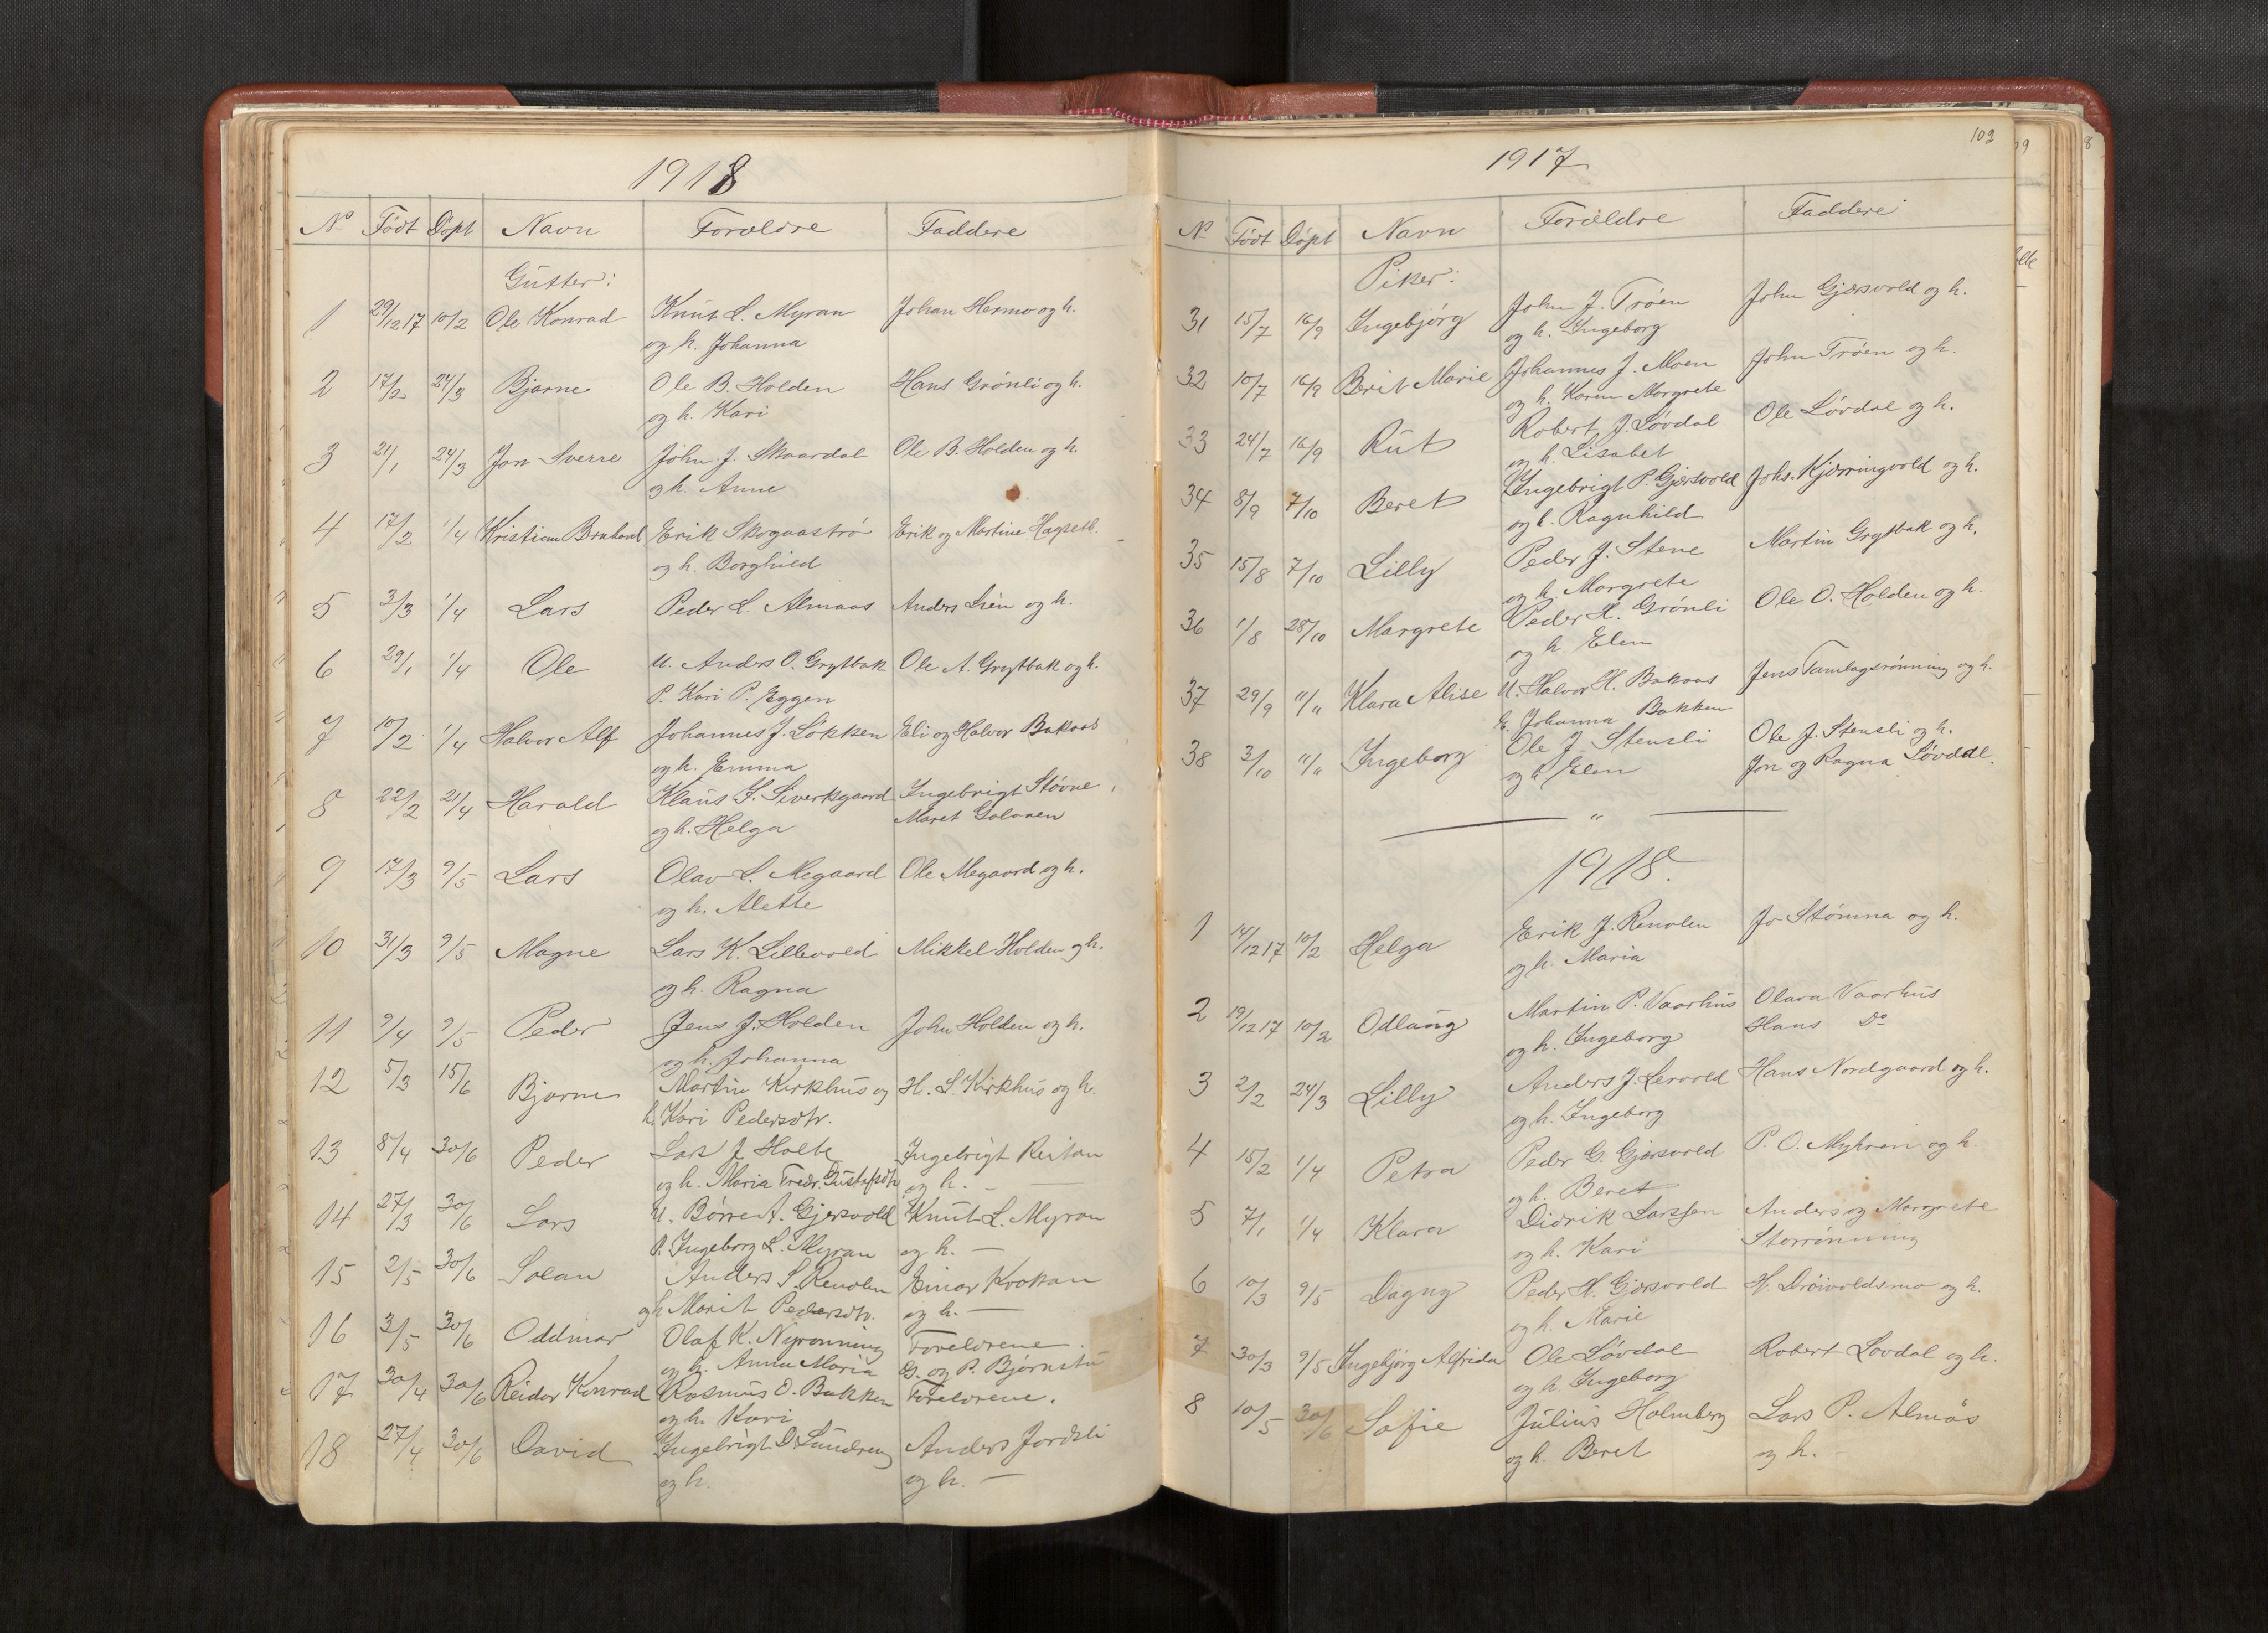 1918
No Født Døpt Navn Forældre Faddere
Gutter:
1 29/12 17 10/2 Ole Konrad Knut L. Myran Johan Hermo og h.
og h. Johanna
2 17/2 24/3 Bjarne Ole B. Holden Hans Grønli og h.
og h. Kari
3 21/1 24/3 Jon Sverre John J. Skaardal Ole B. Holden og h.
og h. Anne
4 17/2 1/4 Kristian Bernhard Erik Skogaastrø Erik og Martine Hagseth.
og h. Borghild
5 3/3 1/4 Lars Peder L. Almaas Anders Lien og h.
6 29/1 1/4 Ole U. Anders O. Grytbak Ole A. Grytbak og h.
P. Kari P. Eggen
7 10/2 1/4 Halvor Alf Johannes J. Løkken Eli og Halvor Bakaas
og h. Emma
8 22/2 21/4 Harald Klaus J. Siverksgaard Ingebrigt Støvne,
og h. Helga Maret Galaaen
9 17/3 9/5 Lars Olav L. Megaard Ole Megaard og h.
og h. Alette
10 31/3 9/5 Magne Lars K. Lillevold Mikkel Holden og h.
og h. Ragna
11 9/4 9/5 Peder Jens J. Holden John Holden og h.
og h. Johanna
12 5/3 15/6 Bjarne Martin Kirkhus og H. L. Kirkhus og h.
h. Kari Pedersdtr.
13 8/4 30/6 Peder Lars J Holte Ingebrigt Reitan
og h. Maria Fredr. Gustafsdtr og h. —
14 27/3 30/6 Lars U. Børre A. Gjersvold Knut L. Myran
P. Ingeborg L. Myran og h. —
15 2/5 30/6 Solan Anders S. Renolen Einar Krokan
og h Marit Pedersdtr. og h. —
16 3/5 30/6 Oddmar Olaf K. Nyrønning Foreldrene
og h. Anna Maria G. og P. Bjørnstu
17 30/4 30/6 Reidar Konrad Rasmus O. Bakken Foreldrene.
og h. Kari
18 27/4 30/6 David Ingebrigt D. Lundeng Anders Jordsli
og h. og h. —
102
1917
No Født Døpt Navn Forældre Faddere
Piker:
31 15/7 16/9 Ingebjørg John J. Trøen John Gjersvold og h.
og h. Ingeborg
32 10/7 16/9 Berit Marie Johannes J. Moen John Trøen og h.
og h. Karen Margrete
33 24/7 16/9 Rut Robert J. Løvdal Ole Løvdal og h.
og h. Lisabet
34 8/9 7/10 Beret Ingebrigt P. Gjersvold Johs. Kjørringvold og h.
og h. Ragnhild
35 15/8 7/10 Lilly Peder J. Stene Martin Grytbak og h.
og h. Margrete
36 1/8 28/10 Margrete Peder H. Grønli Ole O. Holden og h.
og h. Elen
37 29/9 11/11 Klara Alise U. Halvor H. Bakaas Jens Tamlagsrønning og h.
E. Johanna Bakken
38 3/10 11/11 Ingeborg Ole J. Stensli Ole J. Stensli og h.
og h Elen Jon og Ragna Løvdal.
— " —
1918.
1 14/12 17 10/2 Helga Erik J. Renolen Jo Stømna og h.
og h. Maria
2 19/12 17 10/2 Odlaug Martin P. Vaarhus Olava Vaarhus
og h. Ingeborg Hans Do
3 2/2 24/3 Lilly Anders J. Lervold Hans Nordgaard og h.
og h. Ingeborg
4 15/2 1/4 Petra Peder G. Gjersvold P. O. Myhren og h.
og h. Beret
5 7/1 1/4 Klara Didrik Larssen Anders og Margrete
og h. Kari Storrønning
6 10/3 9/5 Dagny Peder H. Gjersvold H. Drøivoldsmo og h.
og h. Marie
7 30/3 9/5 Ingebjørg Alfrida Ole Løvdal Robert Løvdal og h.
og h. Ingeborg
8 10/5 30/6 Sofie Julius Holmberg Lars P. Almås
og h. Beret og h. —